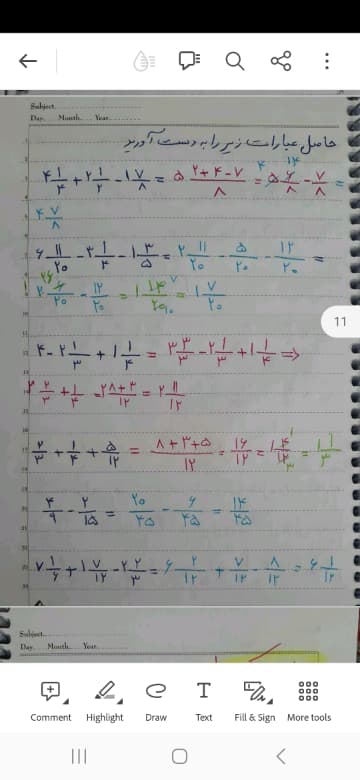 Subject.
Day. Month. Year.
حاصل عبارات زیر را به دست آورید
۴ ۱/۴ + ۲ ۱/۲ - ۱ ۷/۸ = ۵ ۲+۴-۷/۸ = ۵ ۶/۸ - ۷/۸ =
۴ ۷/۸
۶ ۱۱/۲۰ - ۳ ۱/۴ - ۱ ۳/۵ = ۲ ۱۱/۲۰ - ۵/۲۰ - ۱۲/۲۰ =
= ۱ ۷/۲۰
11
۴ - ۲ ۱/۳ + ۱ ۱/۴ = ۳ ۳/۳ - ۲ ۱/۳ + ۱ ۱/۴ ⇒
۲ ۲/۳ + ۱/۴ = ۲ ۸+۳/۱۲ = ۲ ۱۱/۱۲
۲/۳ + ۱/۴ + ۵/۱۲ = ۸+۳+۵/۱۲ = ۱۶/۱۲ = ۱ ۴/۱۲ = ۱ ۱/۳
۴/۹ - ۲/۱۵ = ۲۰/۴۵ - ۶/۴۵ = ۱۴/۴۵
۷ ۱/۶ + ۱ ۷/۱۲ - ۲ ۲/۳ = ۶ ۲/۱۲ + ۷/۱۲ - ۸/۱۲ = ۶ ۱/۱۲
Subject.
Day. Month. Year.
Comment Highlight Draw Text Fill & Sign More tools